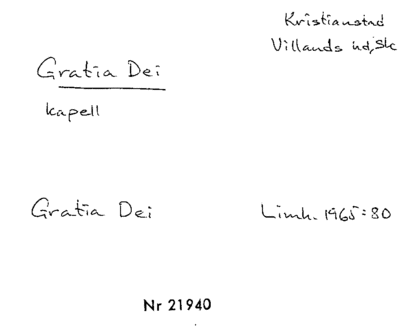 Kristianstad
Villands hd, Sk
Gratia Dei
kapell
Gratia Dei Limh. 1965:80
Nr 21940